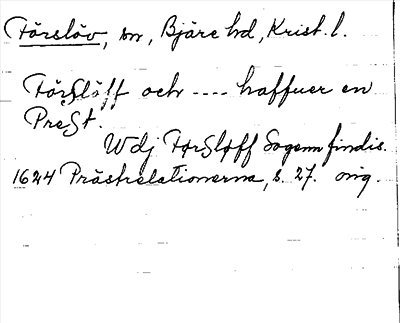 Förslöv, sn, Bjäre hd, Krist. l.
FörSlöff och .... haffuer en
PreSt.
Wdj FørSløff Sogenn findis.
1624 Prästrelationerna, s. 27. orig.